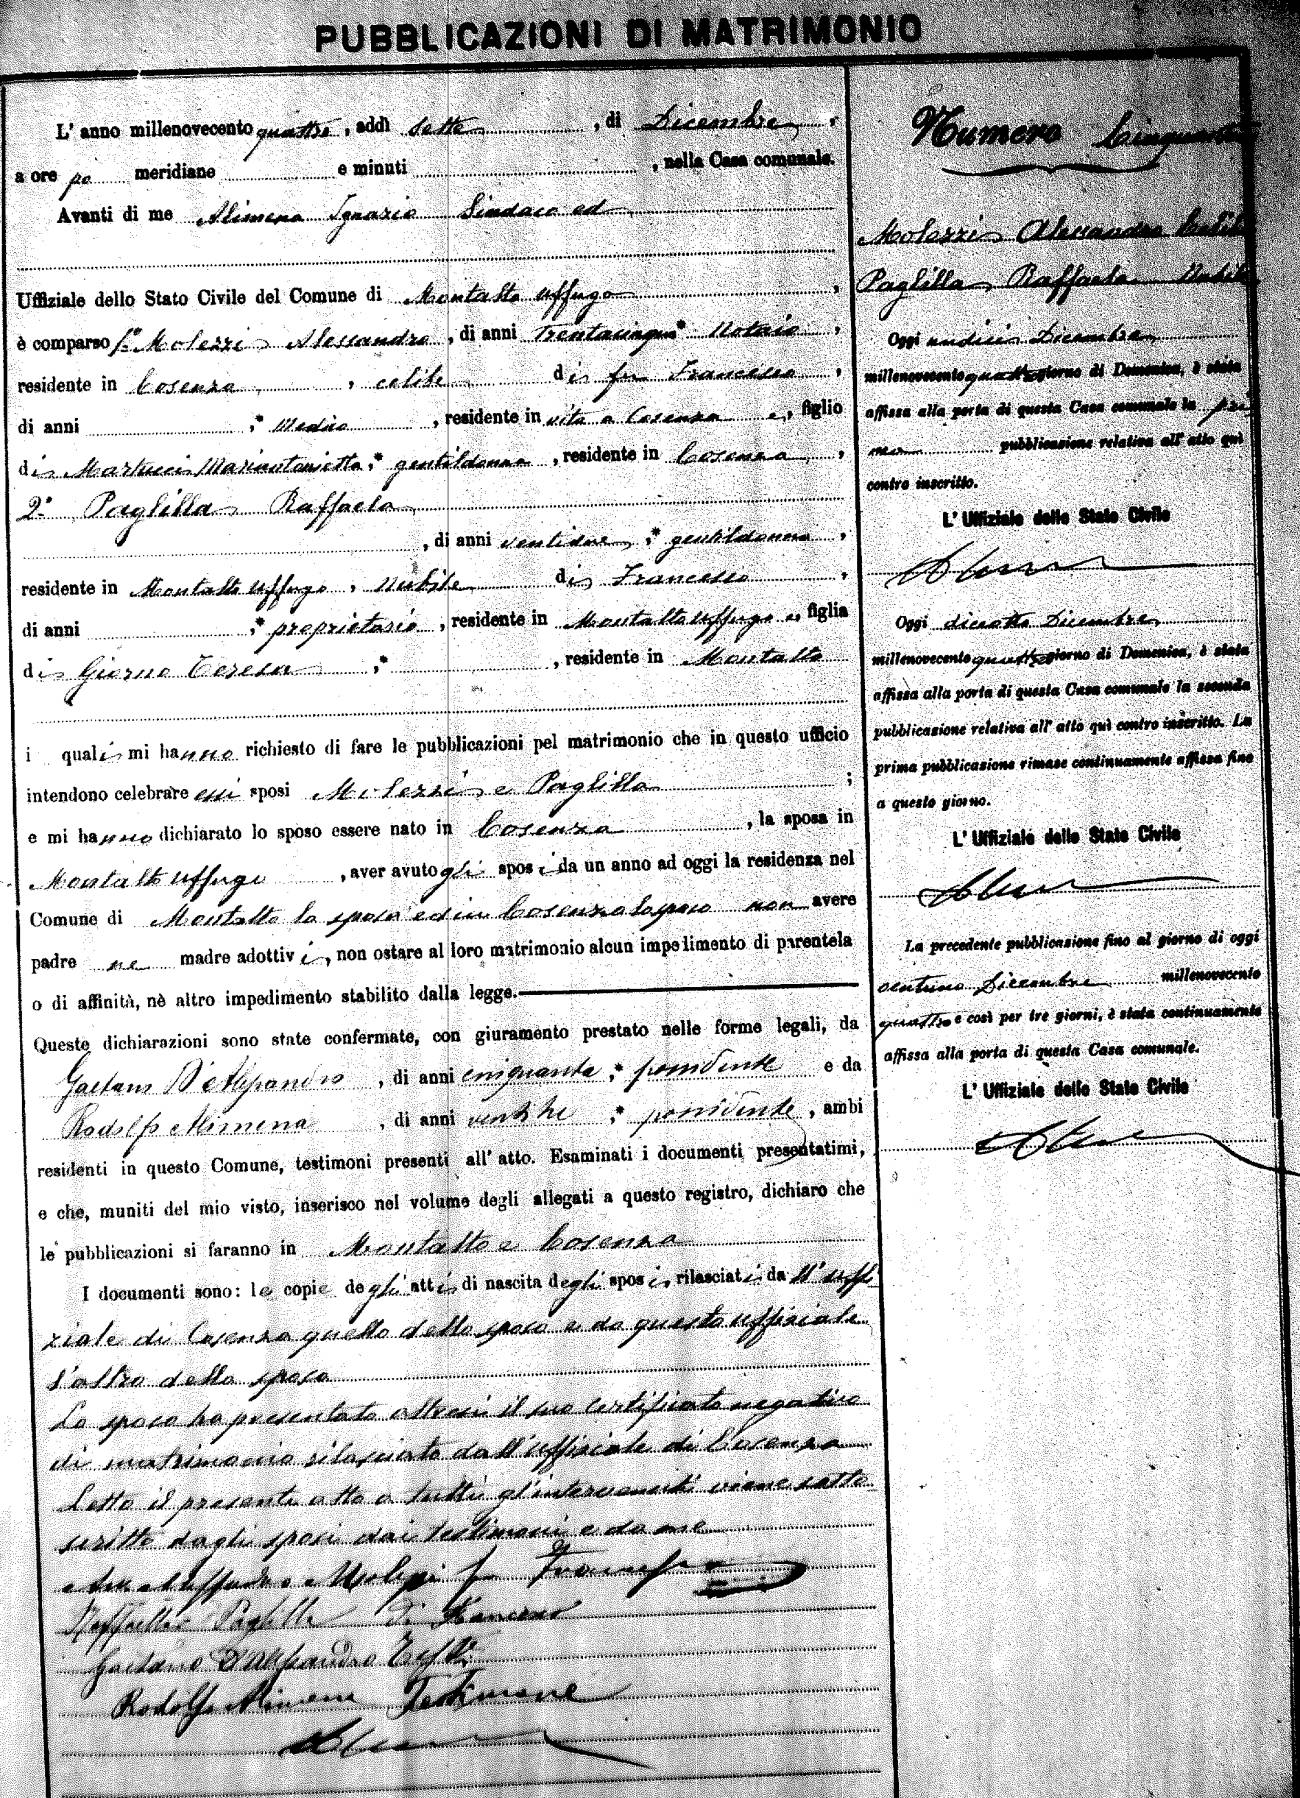 PUBBLICAZIONI DI MATRIMONIO
L' anno millenovecento quattro, addì sette, di Dicembre,
a ore po meridiane e minuti , nella Casa comunale.
Avanti di me Alimena Ignazio Sindaco ed
Uffiziale dello Stato Civile del Comune di Montalto Uffugo,
è comparso 1° Molezzi Alessandro, di anni trentacinque * Notaio,
residente in Cosenza, celibe di fu Francesco,
di anni , * Medico, residente in vita a Cosenza e, figlio
di Martucci Mariantonietta, * gentildonna, residente in Cosenza,
2° Paglilla Raffaela
, di anni ventidue, * gentildonna,
residente in Montalto Uffugo, nubile di Francesco,
di anni , * proprietario, residente in Montalto Uffugo e, figlia
di Giorno Teresa, * , residente in Montalto
i quali mi hanno richiesto di fare le pubblicazioni pel matrimonio che in questo ufficio
intendono celebrare essi sposi Molezzi e Paglilla ;
e mi hanno dichiarato lo sposo essere nato in Cosenza, la sposa in
Montalto Uffugo, aver avuto gli sposi da un anno ad oggi la residenza nel
Comune di Montalto la sposa ed in Cosenza lo sposo non avere
padre ne madre adottivi, non ostare al loro matrimonio alcun impedimento di parentela
o di affinità, nè altro impedimento stabilito dalla legge.
Queste dichiarazioni sono state confermate, con giuramento prestato nelle forme legali, da
Gaetano D'Alessandro, di anni cinquanta, * possidente e da
Rodolfo Alimena, di anni ventitre, * possidente, ambi
residenti in questo Comune, testimoni presenti all' atto. Esaminati i documenti presentatimi,
e che, muniti del mio visto, inserisco nel volume degli allegati a questo registro, dichiaro che
le pubblicazioni si faranno in Montalto e Cosenza
I documenti sono: le copie degli atti di nascita degli sposi rilasciati da ll'uffi
ziale di Cosenza quello dello sposo e da questo uffiziale
l'altro della sposa
Lo sposo ha presentato altresì il suo certificato negativo
di matrimonio rilasciato dall'uffiziale di Cosenza
Letto il presente atto a tutti gl'intervenuti viene sotto
scritto dagli sposi dai testimoni e da me
Alessandro Molezzi fu Francesco
Raffaella Paglilla di Francesco
Gaetano D'Alessandro
Rodolfo Alimena Testimone
Numero
Molezzi Alessandro
Paglilla Raffaela Nubile
Oggi undici Dicembre
millenovecento quattro giorno di Domenica, è stata
affissa alla porta di questa Casa comunale la pri
ma pubblicazione relativa all' atto quì
contro inscritto.
L' Uffiziale dello Stato Civile
Oggi diciotto Dicembre
millenovecento quattro giorno di Domenica, è stata
affissa alla porta di questa Casa comunale la seconda
pubblicazione relativa all' atto quì contro inscritto. La
prima pubblicazione rimase continuamente affissa fino
a questo giorno.
L' Uffiziale dello Stato Civile
La precedente pubblicazione fino al giorno di oggi
ventuno Dicembre millenovecento
quattro e così per tre giorni, è stata continuamente
affissa alla porta di questa Casa comunale.
L' Uffiziale dello Stato Civile